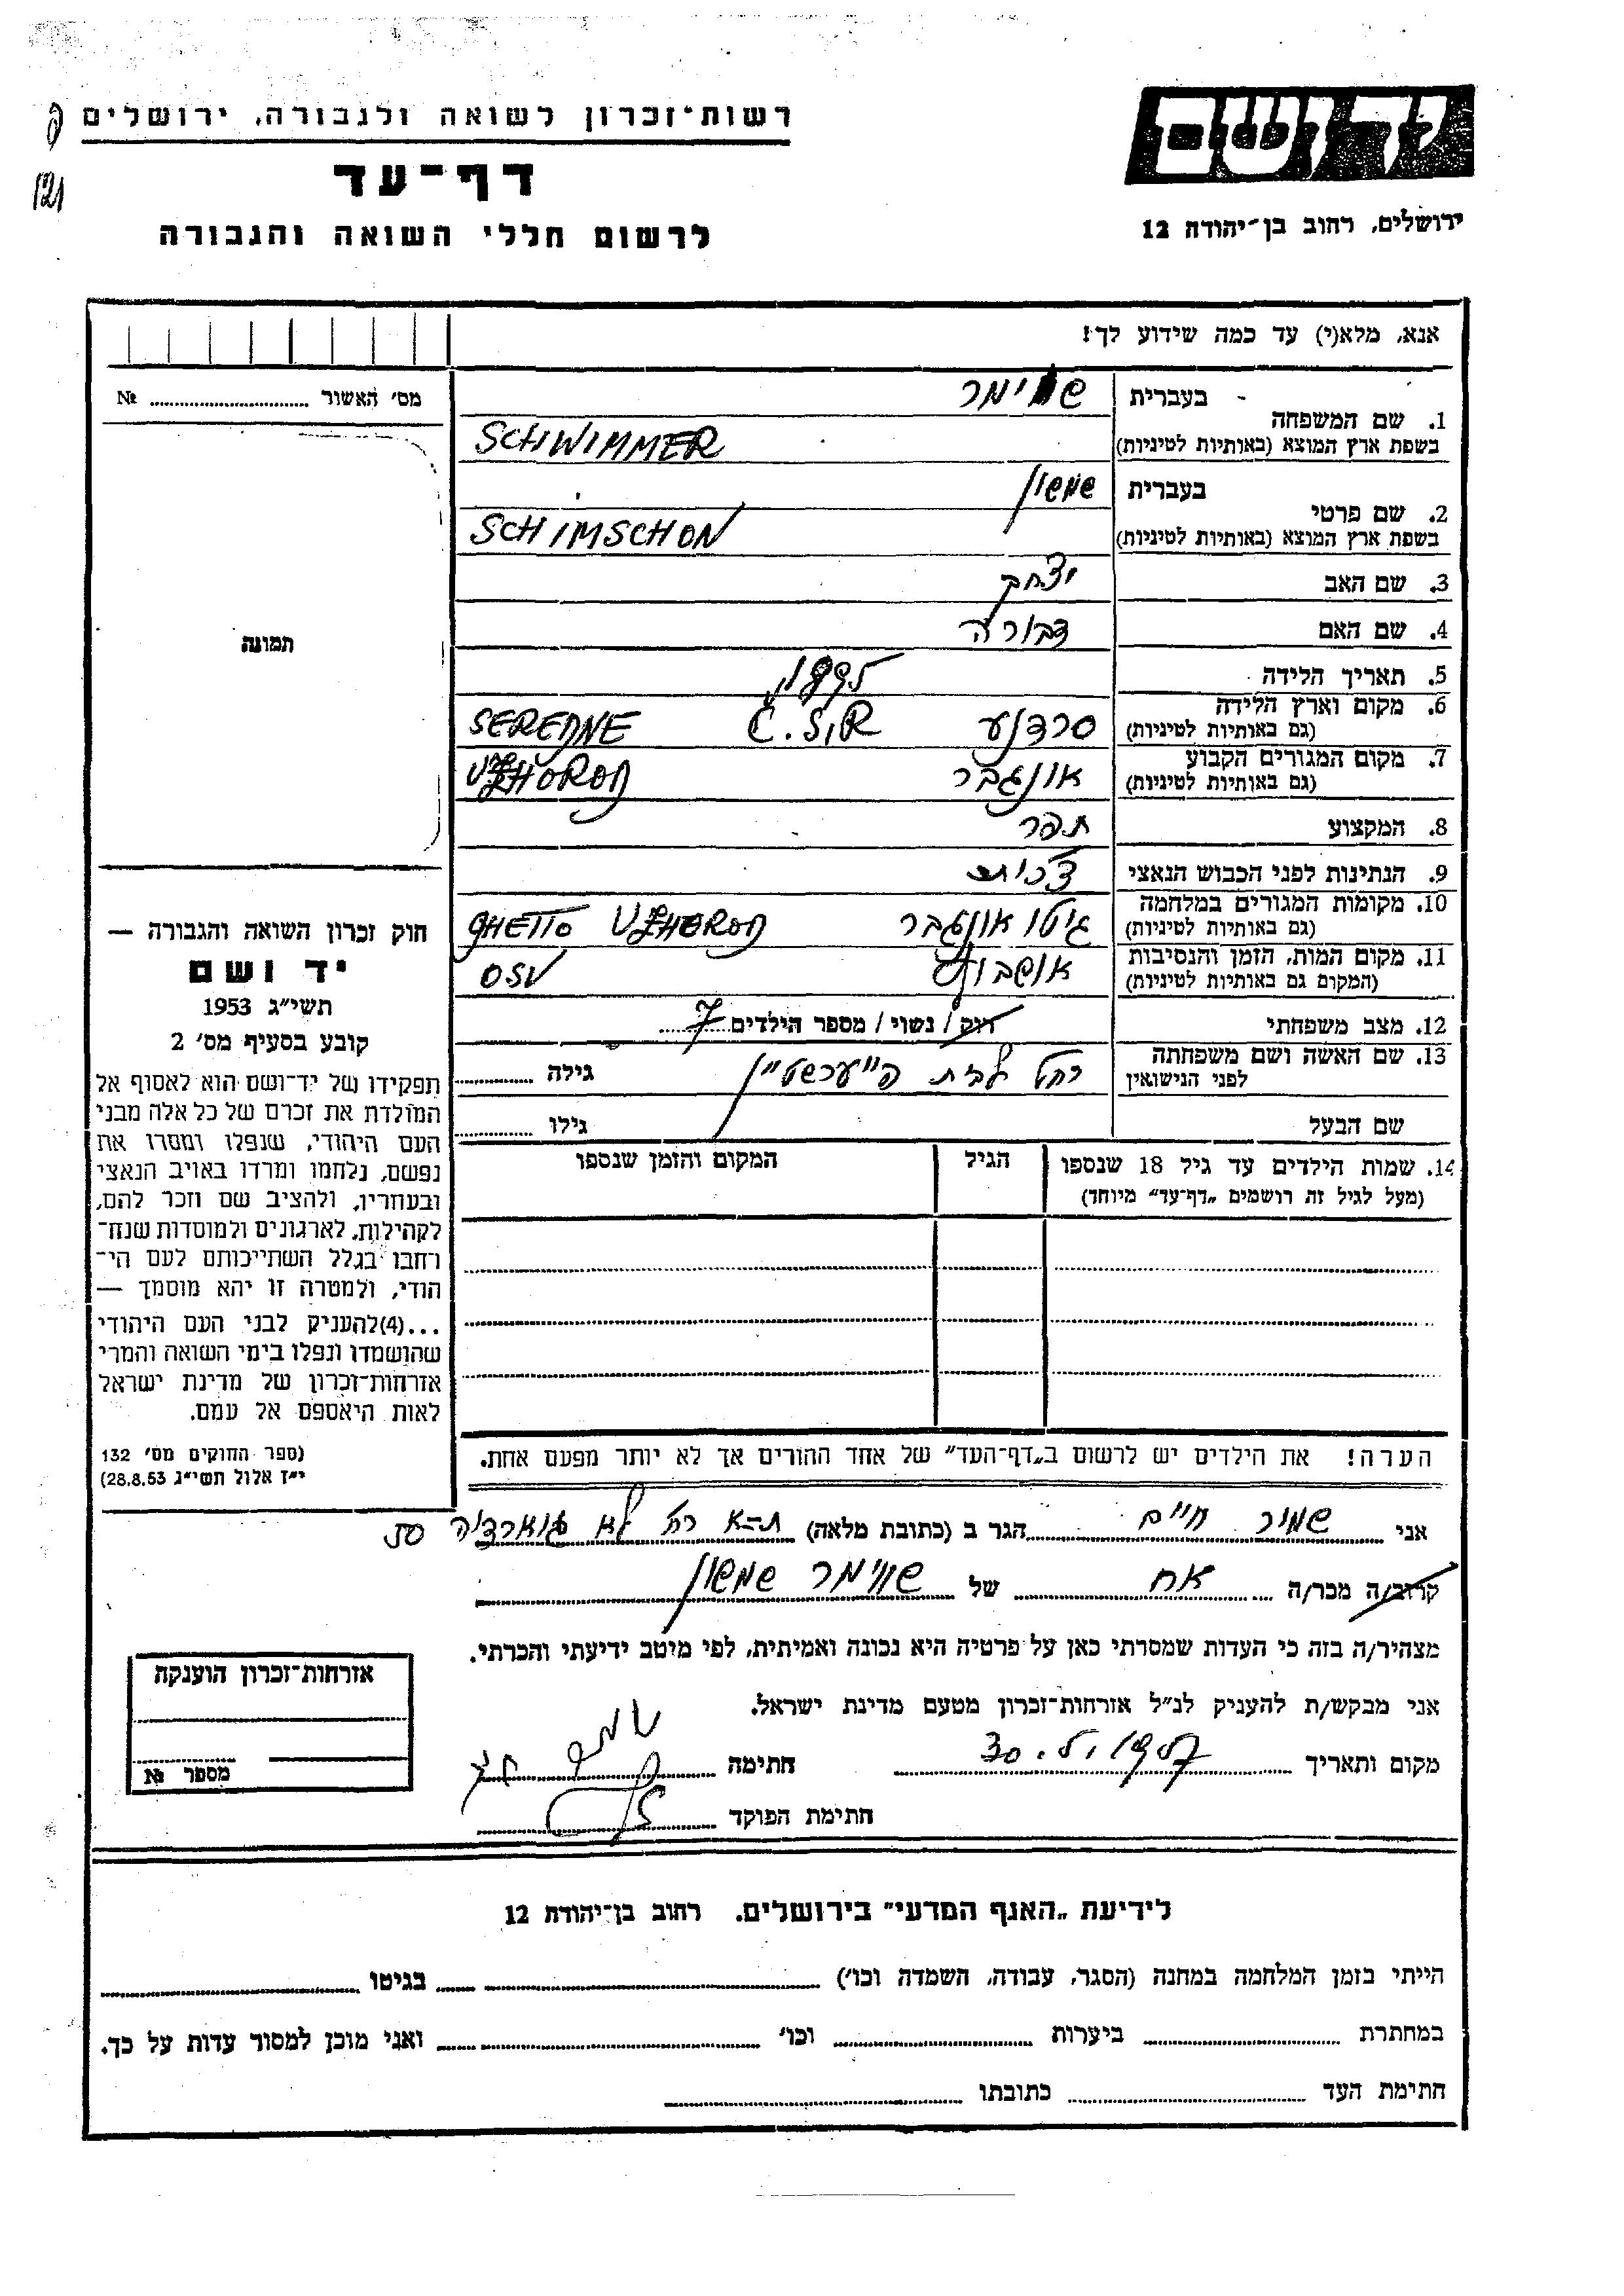 יד ושם
ירושלים, רחוב בן־יהודה 12
רשות־זכרון לשואה ולגבורה, ירושלים
דף־עד
לרשום חללי השואה והגבורה
121
אנא, מלא(י) עד כמה שידוע לך!
1. שם המשפחה בעברית שווימר
בשפת ארץ המוצא (באותיות לטיניות) SCHWIMMER
2. שם פרטי בעברית שמשון
בשפת ארץ המוצא (באותיות לטיניות) SCHIMSCHON
3. שם האב יצחק
4. שם האם דבורה
5. תאריך הלידה
6. מקום וארץ הלידה (גם באותיות לטיניות) סרדנע C.S.R SEREDNE
7. מקום המגורים הקבוע (גם באותיות לטיניות) אונגבר UZHOROD
8. המקצוע תפר
9. הנתינות לפני הכבוש הנאצי צ'כית
10. מקומות המגורים במלחמה (גם באותיות לטיניות) גיטו אונגבר GHETTO UZHOROD
11. מקום המות, הזמן והנסיבות (המקום גם באותיות לטיניות) אושבוץ OSV
12. מצב משפחתי רוק / נשוי / מספר הילדים 7
13. שם האשה ושם משפחתה לפני הנישואין רחל לבית פייערשטיין גילה
שם הבעל גילו
14. שמות הילדים עד גיל 18 שנספו
(מעל לגיל זה רושמים „דף־עד” מיוחד)
הגיל
המקום והזמן שנספו
הערה! את הילדים יש לרשום ב„דף־העד” של אחד ההורים אך לא יותר מפעם אחת.
מס' האשור №
תמונה
חוק זכרון השואה והגבורה —
יד ושם
תשי״ג 1953
קובע בסעיף מס' 2
תפקידו של יד־ושם הוא לאסוף אל
המולדת את זכרם של כל אלה מבני
העם היהודי, שנפלו ומסרו את
נפשם, נלחמו ומרדו באויב הנאצי
ובעוזריו, ולהציב שם וזכר להם,
לקהילות, לארגונים ולמוסדות שנח־
רחבו בגלל השתייכותם לעם הי־
הודי, ולמטרה זו יהא מוסמך —
...(4)להעניק לבני העם היהודי
שהושמדו ונפלו בימי השואה והמרי
אזרחות־זכרון של מדינת ישראל
לאות היאספם אל עמם.
(ספר החוקים מס' 132
י״ז אלול תשי״ג 28.8.53)
אני שמיר חיים הגר ב (כתובת מלאה) ת-א רח' לא גוארדיה 50
קרוב/ה מכר/ה אח של שווימר שמשון
מצהיר/ה בזה כי העדות שמסרתי כאן על פרטיה היא נכונה ואמיתית, לפי מיטב ידיעתי והכרתי.
אני מבקש/ת להעניק לנ״ל אזרחות־זכרון מטעם מדינת ישראל.
מקום ותאריך חתימה
חתימת הפוקד
אזרחות־זכרון הוענקה
מספר №
לידיעת „האגף המדעי” בירושלים. רחוב בן־יהודה 12
הייתי בזמן המלחמה במחנה (הסגר, עבודה, השמדה וכו') בגיטו
במחתרת ביערות וכו' ואני מוכן למסור עדות על כך.
חתימת העד כתובתו